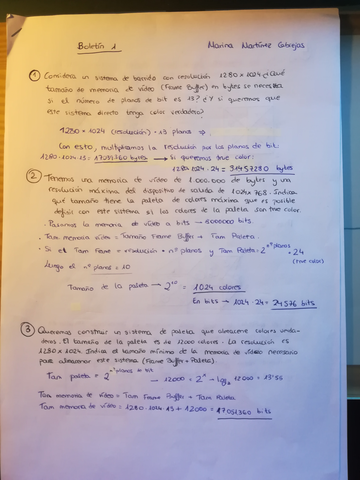 Boletín 1 Marina Martínez Cabrejas
① Considera un sistema de barrido con resolución 1280 x 1024 ¿Qué
tamaño de memoria de vídeo (Frame Buffer) en bytes se necesita
si el número de planos de bit es 13? ¿Y si queremos que
este sistema directo tenga color verdadero?
1280 · 1024 (resolución) · 13 planos ⇒
Con esto, multiplicamos la resolución por los planos de bit:
1280 · 1024 · 13 = 17039360 bytes → Si queremos true color:
1280 · 1024 · 24 = 31457280 bytes
② Tenemos una memoria de vídeo de 1.000.000 de bytes y una
resolución máxima del dispositivo de salida de 1024 x 768. Indica
qué tamaño tiene la paleta de colores máxima que es posible
definir con este sistema si los colores de la paleta son true color.
· Pasamos la memoria de vídeo a bits → 8000000 bits.
· Tam memoria vídeo = Tamaño Frame Buffer + Tam Paleta.
· Si el Tam Frame = resolución · nº planos y Tam Paleta = 2^nº planos · 24
(true color)
Luego el nº planos = 10
Tamaño de la paleta → 2^10 = 1024 colores
En bits → 1024 · 24 = 24576 bits
③ Queremos construir un sistema de paleta que almacene colores verda-
deros. El tamaño de la paleta es de 12000 colores. La resolución es
1280 x 1024. Indica el tamaño mínimo de la memoria de vídeo necesario
para almacenar este sistema (Frame Buffer + Paleta).
Tam paleta = 2^nº planos de bit → 12000 = 2^x → log₂ 12000 = 13'55
Tam memoria de vídeo = Tam Frame Buffer + Tam Paleta
Tam memoria de vídeo = 1280 · 1024 · 13 + 12000 = 17051360 bits